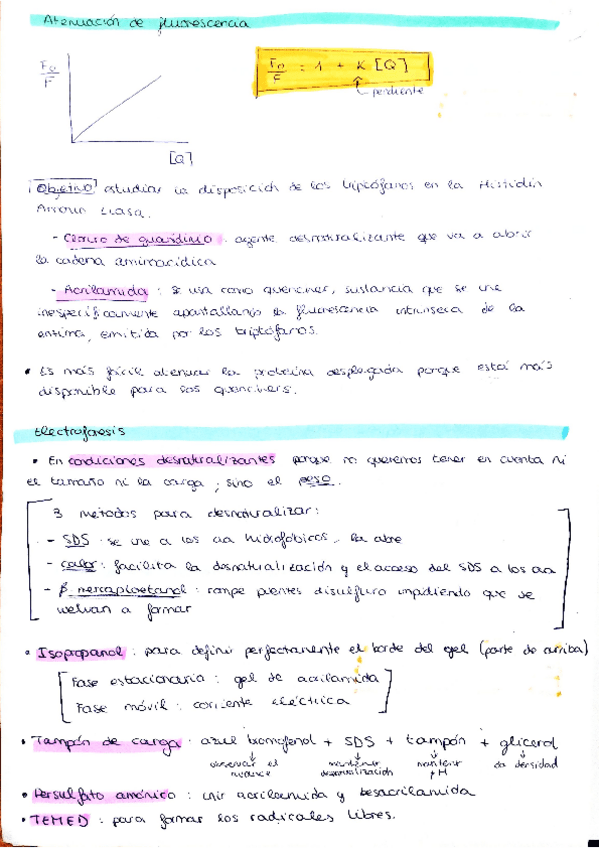 Atenuación de fluorescencia
F0/F
F0/F = 1 + K [Q]
pendiente
[Q]
Objetivo estudiar la disposición de los triptófanos en la Histidin
Amonio Liasa.
- Cloruro de guanidinio : agente desnaturalizante que va a abrir
la cadena aminoacídica
- Acrilamida : se usa como quencher, sustancia que se une
inespecíficamente apantallando la fluorescencia intrínseca de la
enzima, emitida por los triptófanos.
• Es más fácil atenuar la proteína desplegada porque está más
disponible para los quenchers.
Electroforesis
• En condiciones desnaturalizantes porque no queremos tener en cuenta ni
el tamaño ni la carga, sino el peso.
3 métodos para desnaturalizar:
- SDS se une a los aa hidrofóbicos, la abre
- calor : facilita la desnaturalización y el acceso del SDS a los aa
- β mercaptoetanol : rompe puentes disulfuro impidiendo que se
vuelvan a formar
• Isopropanol : para definir perfectamente el borde del gel (parte de arriba)
Fase estacionaria : gel de acrilamida
Fase móvil : corriente eléctrica
• Tampón de carga azul bromofenol + SDS + tampón + glicerol
observar el avance mantener desnaturalización mantener pH da densidad
• Persulfato amónico : unir acrilamida y bisacrilamida
• TEMED : para formar los radicales libres.